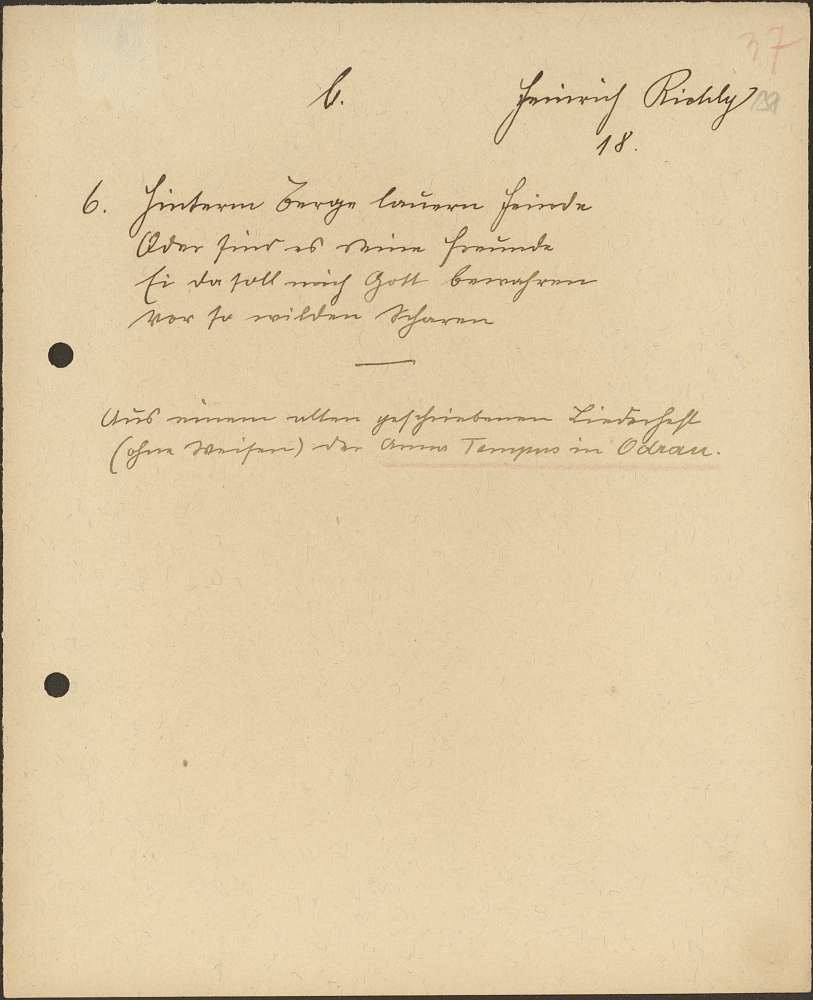 37
b. Heinrich Richly
18.
6. Hinterm Berge lauern Feinde
Oder sind es deine Freunde
Ei da soll mich Gott bewahren
Vor so wilden Scharen
Aus einem alten geschriebenen Liederheft
(ohne Weisen) der Anna Tempus in Odrau.